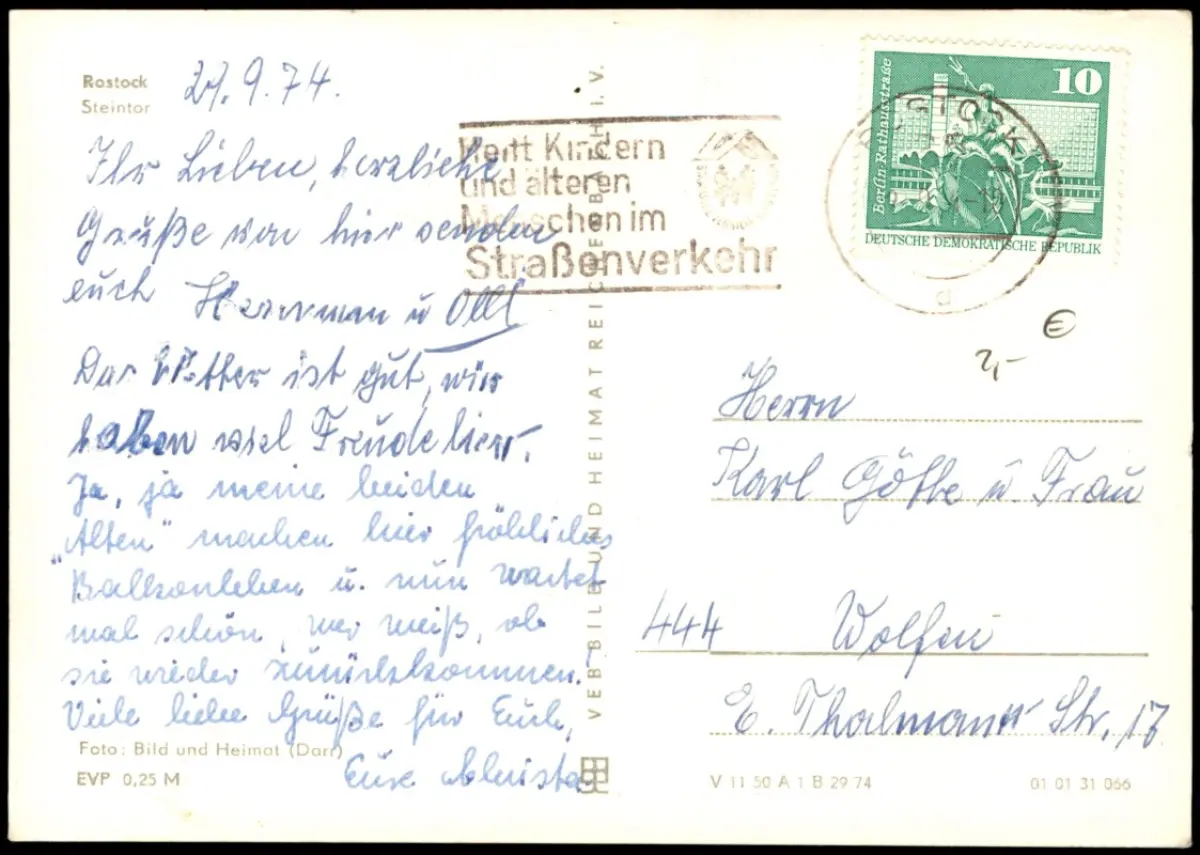 Rostock
Steintor
29.9.74.
Ihr Lieben, herzliche
Grüße von hier senden
euch Herrman u Olli
Das Wetter ist gut, wir
haben viel Freude hier.
Ja, ja meine beiden
„Alten" machen hier fröhliches
Balkonleben u. nun wartet
mal schön, wer weiß, ob
sie wieder zurückkommen!
Viele liebe Grüße für Euch,
Eure
Foto: Bild und Heimat (Darr)
EVP 0,25 M
VEB BILD UND HEIMAT REICHENBACH I. V.
Helft Kindern
und älteren
Menschen im
Straßenverkehr
ROSTOCK
d
10
Berlin Rathausstraße
DEUTSCHE DEMOKRATISCHE REPUBLIK
€
2,-
Herrn
Karl Göthe u Frau
444 Wolfen
E. Thalmann Str. 17
V 11 50 A 1 B 29 74
01 01 31 066